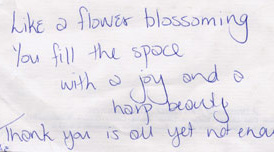 Like a flower blossoming
You fill the space
with a joy and a
harp beauty
Thank you is all yet not